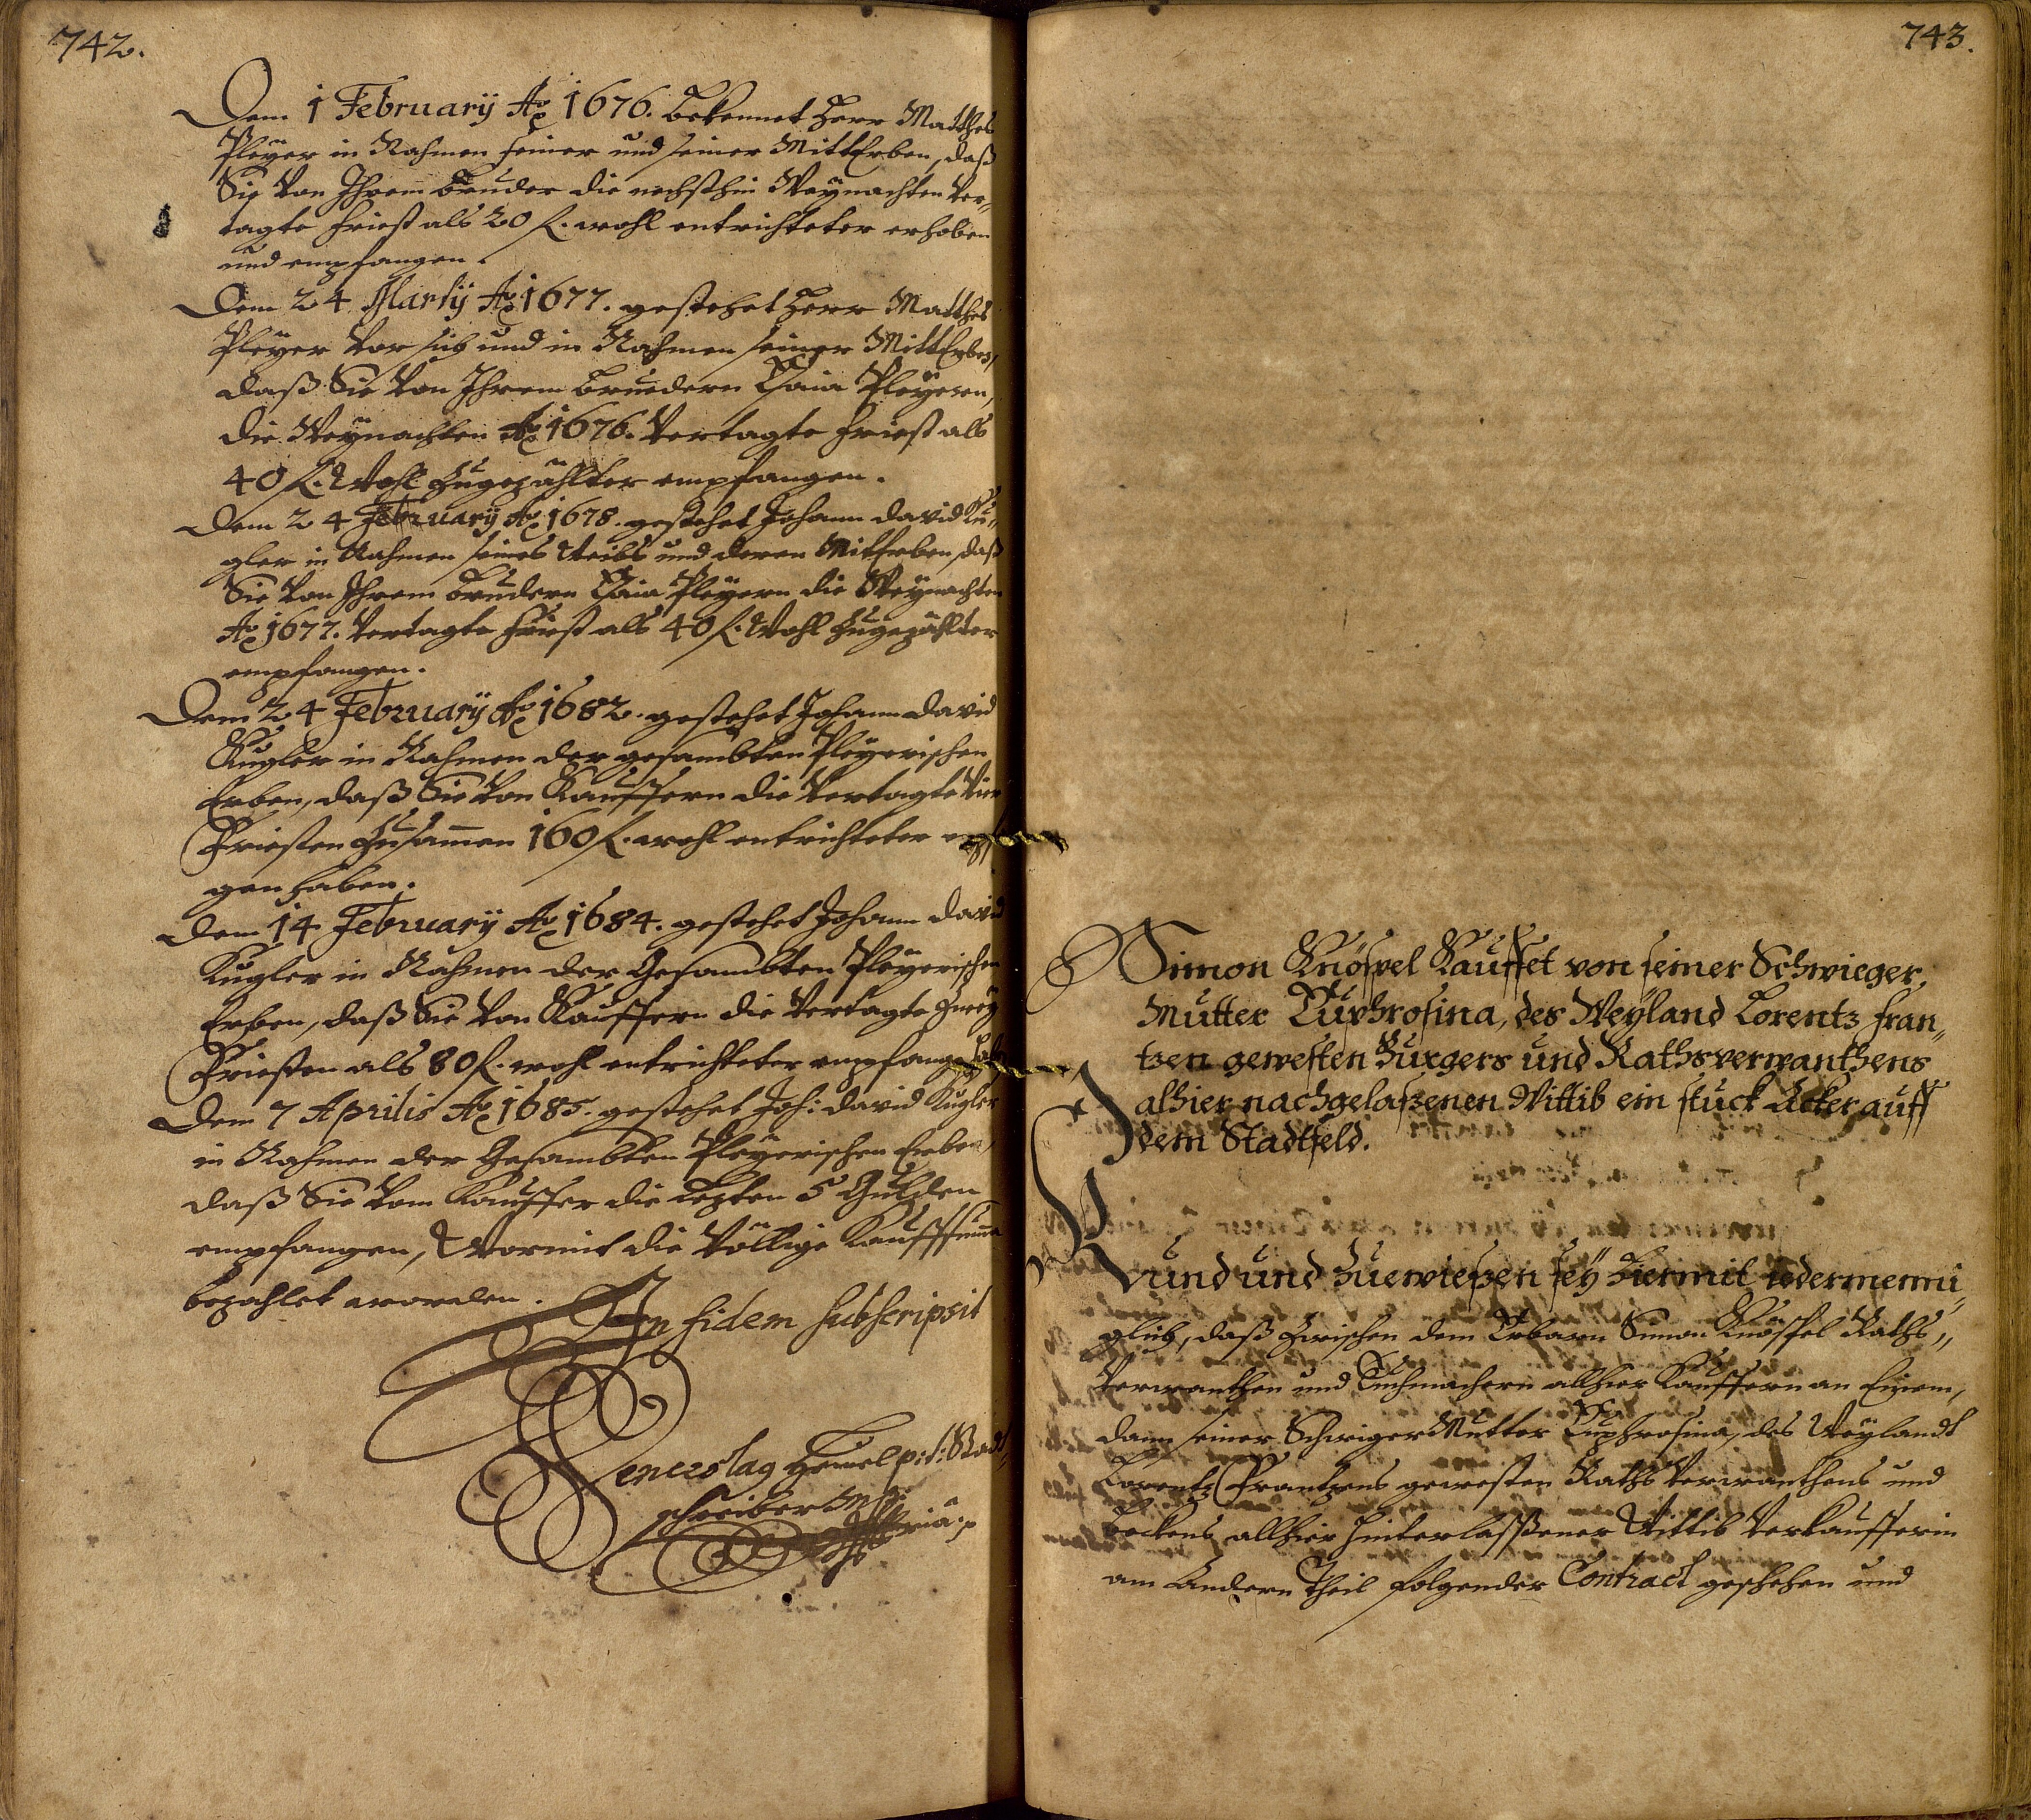 742.
Dem 1 February Ao 1676. bekennet Herr Matthes
Pleyer in Nahmen seiner und seiner MittErben, daß
Sie von Ihrem bruder die nechsthin Weynachten Ver„
tagte Friest als 20 f. wohl entrichteter erhoben
und empfangen.
Dem 24 Martij Ao 1677. gestehet Herr Matthes
Pleyer vor sich und in Nahmen seiner MittErben,
daß Sie von Ihrem bruedern Esaia Pleyeren,
die Weynachten Ao 1676. Vertagte Friest als
40 f. Wohl Zugezählter empfangen.
Dem 24 February Ao 1678. gestehet Johann David Ku„
gler in Nahmen seines Weibs und deren MitErben, daß
Sie von Ihrem brudern Esaia Pleyern die Weynachten
Ao 1677. Vertagte Friest als 40 f. Wohl Zugezählter
empfangen.
Dem 24 February Ao 1682. gestehet Johann David
Kugler in Nahmen der gesambten Pleyerischen
Erben, daß Sie von Kauffern die Vertagte Vier
Friesten Zusam̄en 160 f. wohl entrichteter empfan
gen haben.
Dem 14 February Ao 1684. gestehet Johann David
Kugler in Nahmen der Gesambten Pleyerischen
Erben, daß Sie von Kauffern die Vertagte Zwey
Friesten als 80 f. wohl entrichteter empfangen
Dem 7 Aprilis Ao 1685. gestehet Joh: David Kugler
in Nahmen der Gesambten Pleyerischen Erben,
daß Sie vom Kauffer die Lezten 5 Gulden
empfangen, Wormit die Völlige Kauffsum̄a
bezahlet worden.
In fidem subscripsit
Wenczslag p: t: Stadt„
schreiber
743.
Simon Knöspel Kauffet von seiner Schwieger„
Mutter Euphrosina, des Weyland Lorentz Fran„
tzen gewesten Burgers und Rathsverwanthens
alhier nachgelaßenen Wittib ein stuck Acker auff
dem Stadtfeld.
Kund und Zuewießen sey hiermit iedermenni„
glich, daß Zwischen dem Erbarn Simon Knöspel Raths„
Verwanthen und Tuchmachern allhier Kauffern an Einem,
dann seiner SchwigerMutter Euphrosina, des Weylandt
Lorentz Frantzens gewesten Raths Verwanthens und
beckens allhier hinterlaßßener Wittib Verkaufferin
am Andern Theil folgender Contract geschehen und